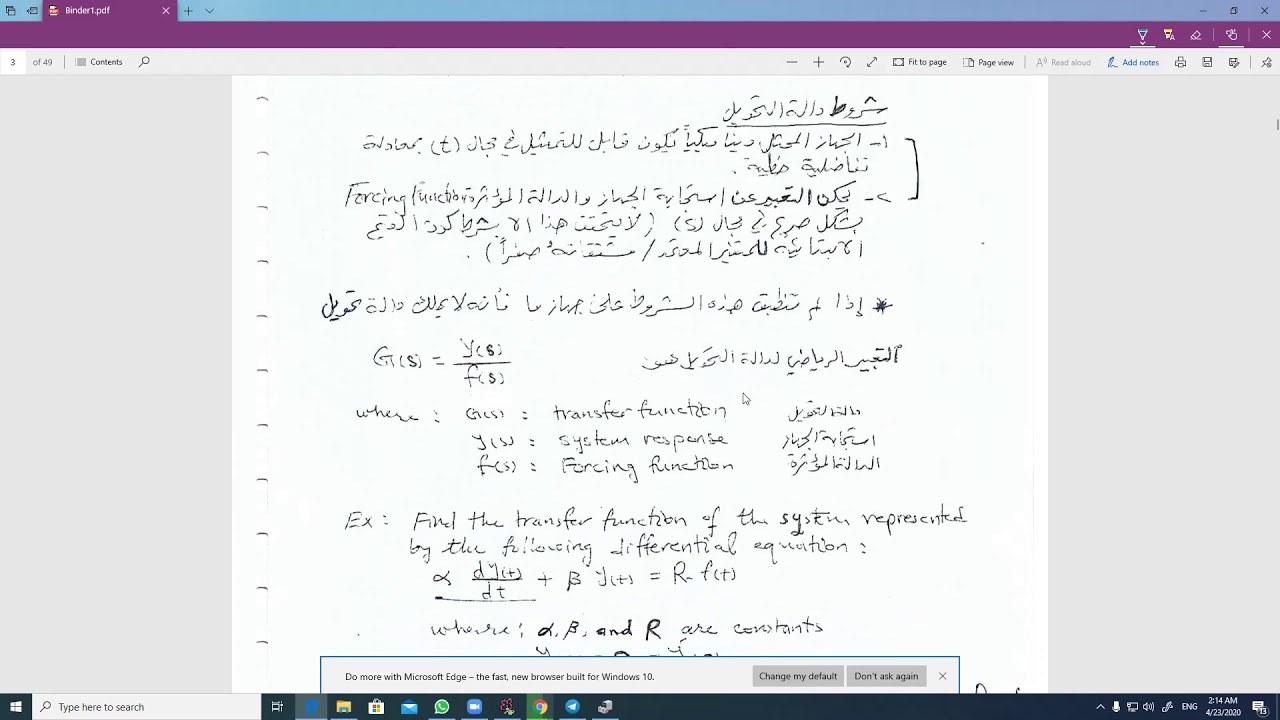 Binder1.pdf
3 of 49 Contents Fit to page Page view Read aloud Add notes
شروط دالة التحويل
١- الجهاز الممثل ديناميكياً يكون قابل للتمثيل في مجال (t) بمعادلة
تفاضلية خطية .
٢- يمكن التعبير عن استجابة الجهاز والدالة المؤثرة Forcing function
بشكل صريح في مجال (s) ( لا يتحقق هذا الا بشرط كون القيم
الابتدائية للمتغير المعتمد / مشتقاته صفراً ) .
* إذا لم تنطبق هذه الشروط على جهاز ما فأنه لا يملك دالة تحويل
التعبير الرياضي لدالة التحويل هو
G(s) = y(s) / f(s)
where : G(s) : transfer function دالة التحويل
y(s) : system response استجابة الجهاز
f(s) : Forcing function الدالة المؤثرة
Ex : Find the transfer function of the system represented
by the following differential equation :
α dy(t)/dt + β y(t) = R f(t)
where ; α, β, and R are constants
Do more with Microsoft Edge – the fast, new browser built for Windows 10. Change my default Don't ask again
Type here to search
ENG 2:14 AM
4/23/2020